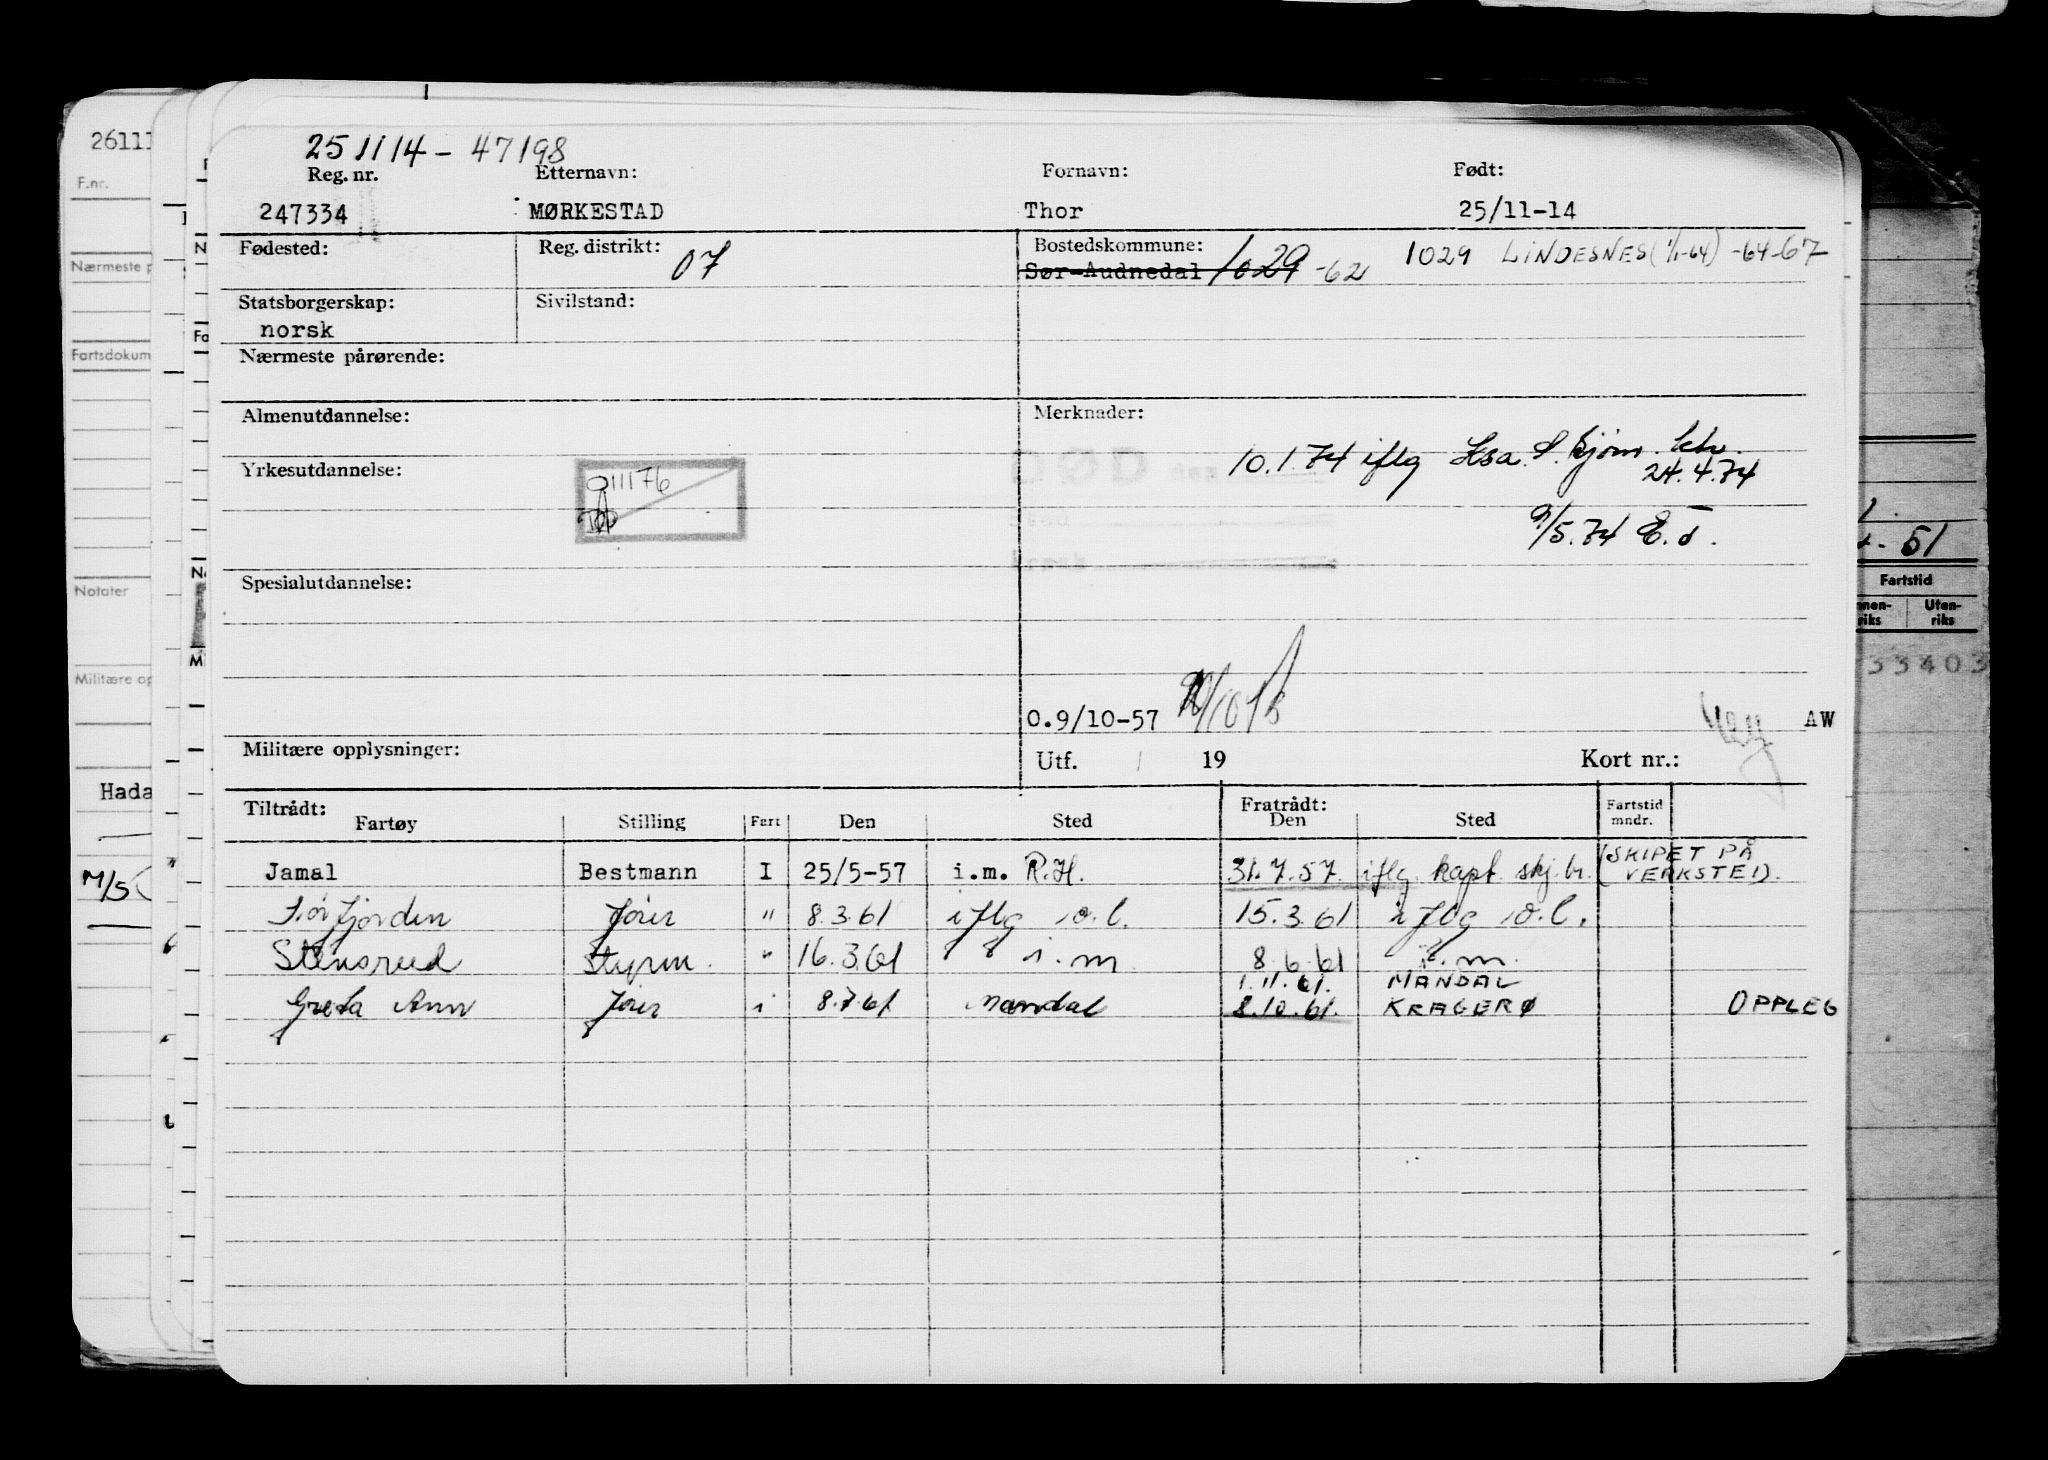 25 11 14 - 47198
Reg. nr. Etternavn: Fornavn: Født:
247334 MØRKESTAD Thor 25/11-14
Fødested: Reg. distrikt: 07 Bostedskommune:
Sør-Audnedal 1029 -62 1029 LINDESNES (1/1-64) -64-67
Statsborgerskap: Sivilstand:
norsk
Nærmeste pårørende:
Almenutdannelse: Merknader:
DØD 10.1.74 iflg
24.4.74
Yrkesutdannelse: 011176
9/5.74 E.
Spesialutdannelse:
O.9/10-57 AW
Militære opplysninger: Utf. 19 Kort nr.:
Tiltrådt: Fratrådt:
Fartøy Stilling Fart Den Sted Den Sted Fartstid mndr.
Jamal Bestmann I 25/5-57 i.m. R.H. 31.7.57. iflg. kapt. skj. br. (SKIPET PÅ VERKSTED).
Sørfjorden fører " 8.3.61 iflg 15.3.61 iflg
Stensreed Styrm. " 16.3.61 i.m 8.6.61 i.m.
1.11.61. MANDAL
Greta Ann fører i 8.7.61 Mandal 8.10.61. KRAGERØ OPPLEG
26111
F.nr.
Nærmeste p
Fartsdokum
Notater
Militære op
Hada
M/S
51
Fartstid
nnen-riks Uten-riks
33403